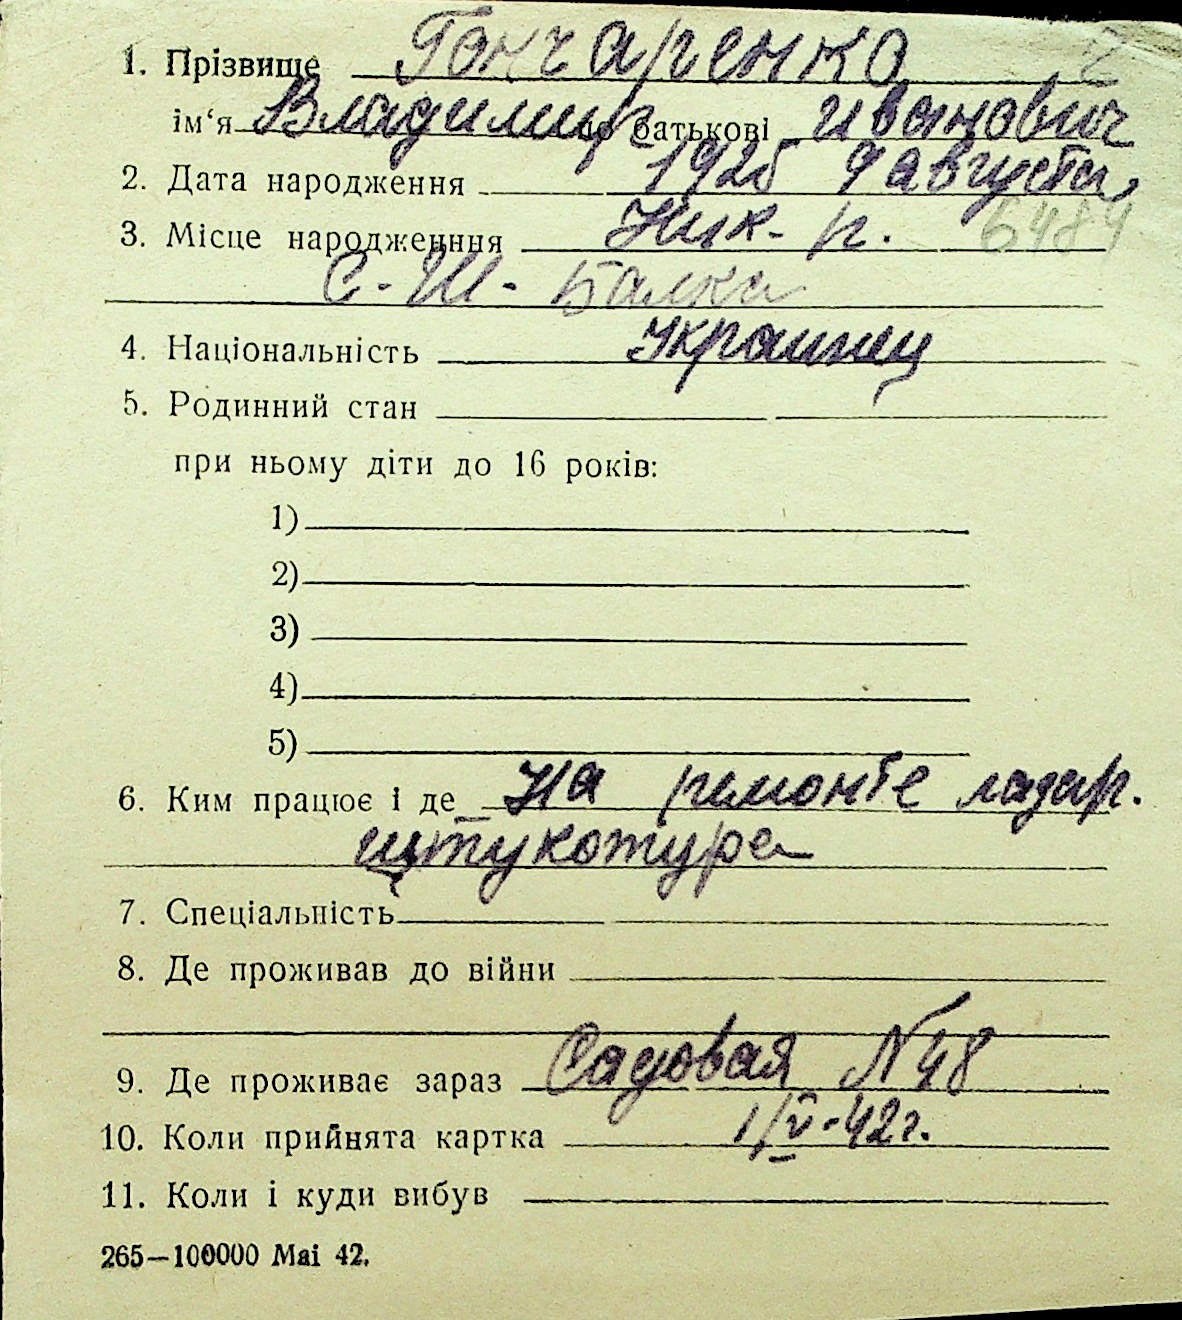 1. Прізвище Гончаренко
ім'я Владимир по батькові Иванович
2. Дата народження 1925 9 августа
3. Місце народженння Ник. р. 6484
С-Ш-Балка
4. Національність Украинец
5. Родинний стан
при ньому діти до 16 років:
1)
2)
3)
4)
5)
6. Ким працює і де На ремонте лазар.
штукотура
7. Спеціальність
8. Де проживав до війни
9. Де проживає зараз Садовая №48
10. Коли прийнята картка 1/V-42г.
11. Коли і куди вибув
265—100000 Mai 42.